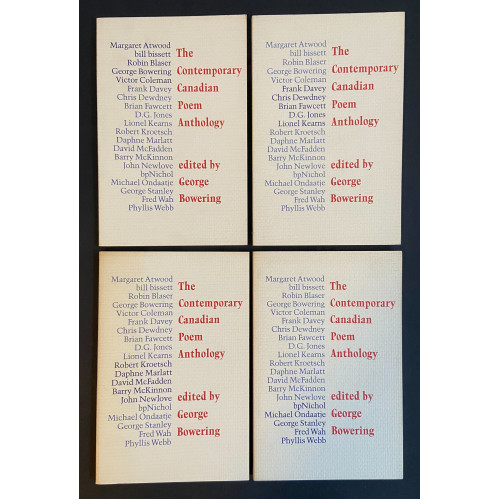 Margaret Atwood
bill bissett
Robin Blaser
George Bowering
Victor Coleman
Frank Davey
Chris Dewdney
Brian Fawcett
D.G. Jones
Lionel Kearns
Robert Kroetsch
Daphne Marlatt
David McFadden
Barry McKinnon
John Newlove
bpNichol
Michael Ondaatje
George Stanley
Fred Wah
Phyllis Webb
The
Contemporary
Canadian
Poem
Anthology
edited by
George
Bowering
Margaret Atwood
bill bissett
Robin Blaser
George Bowering
Victor Coleman
Frank Davey
Chris Dewdney
Brian Fawcett
D.G. Jones
Lionel Kearns
Robert Kroetsch
Daphne Marlatt
David McFadden
Barry McKinnon
John Newlove
bpNichol
Michael Ondaatje
George Stanley
Fred Wah
Phyllis Webb
The
Contemporary
Canadian
Poem
Anthology
edited by
George
Bowering
Margaret Atwood
bill bissett
Robin Blaser
George Bowering
Victor Coleman
Frank Davey
Chris Dewdney
Brian Fawcett
D.G. Jones
Lionel Kearns
Robert Kroetsch
Daphne Marlatt
David McFadden
Barry McKinnon
John Newlove
bpNichol
Michael Ondaatje
George Stanley
Fred Wah
Phyllis Webb
The
Contemporary
Canadian
Poem
Anthology
edited by
George
Bowering
Margaret Atwood
bill bissett
Robin Blaser
George Bowering
Victor Coleman
Frank Davey
Chris Dewdney
Brian Fawcett
D.G. Jones
Lionel Kearns
Robert Kroetsch
Daphne Marlatt
David McFadden
Barry McKinnon
John Newlove
bpNichol
Michael Ondaatje
George Stanley
Fred Wah
Phyllis Webb
The
Contemporary
Canadian
Poem
Anthology
edited by
George
Bowering